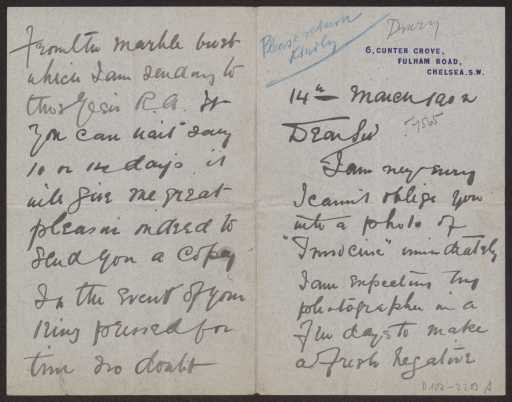 Please return
Kindly
Drury
6, GUNTER GROVE,
FULHAM ROAD,
CHELSEA. S.W.
14th March 1902
Dear Sir
I am very sorry
I cannot oblige you
with a photo of
"Innocence" immediately
I am expecting my
photographer in a
few days to make
a fresh negative
from the marble bust
which I am sending to
this years R.A. If
you can wait say
10 or 14 days it
will give me great
pleasure indeed to
send you a copy
In the event of your
being pressed for
time no doubt